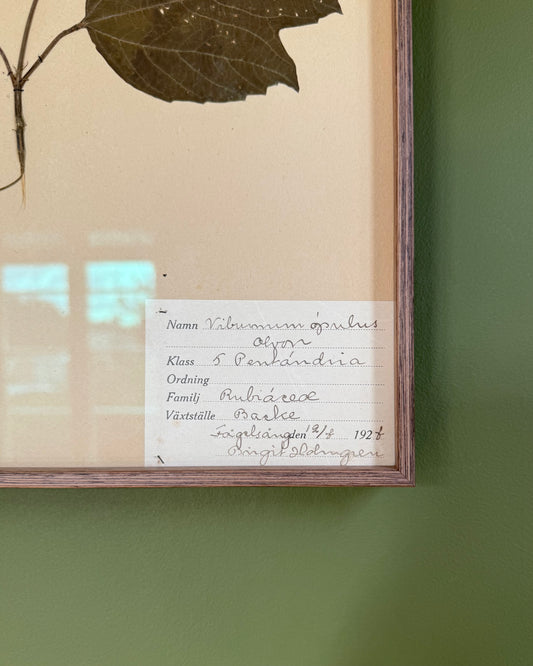 Namn Viburnum ópulus
Olvon
Klass 5 Pentándria
Ordning
Familj Rubiáceæ
Växtställe Backe
Fågelsång den 192
Birgit Holmgren